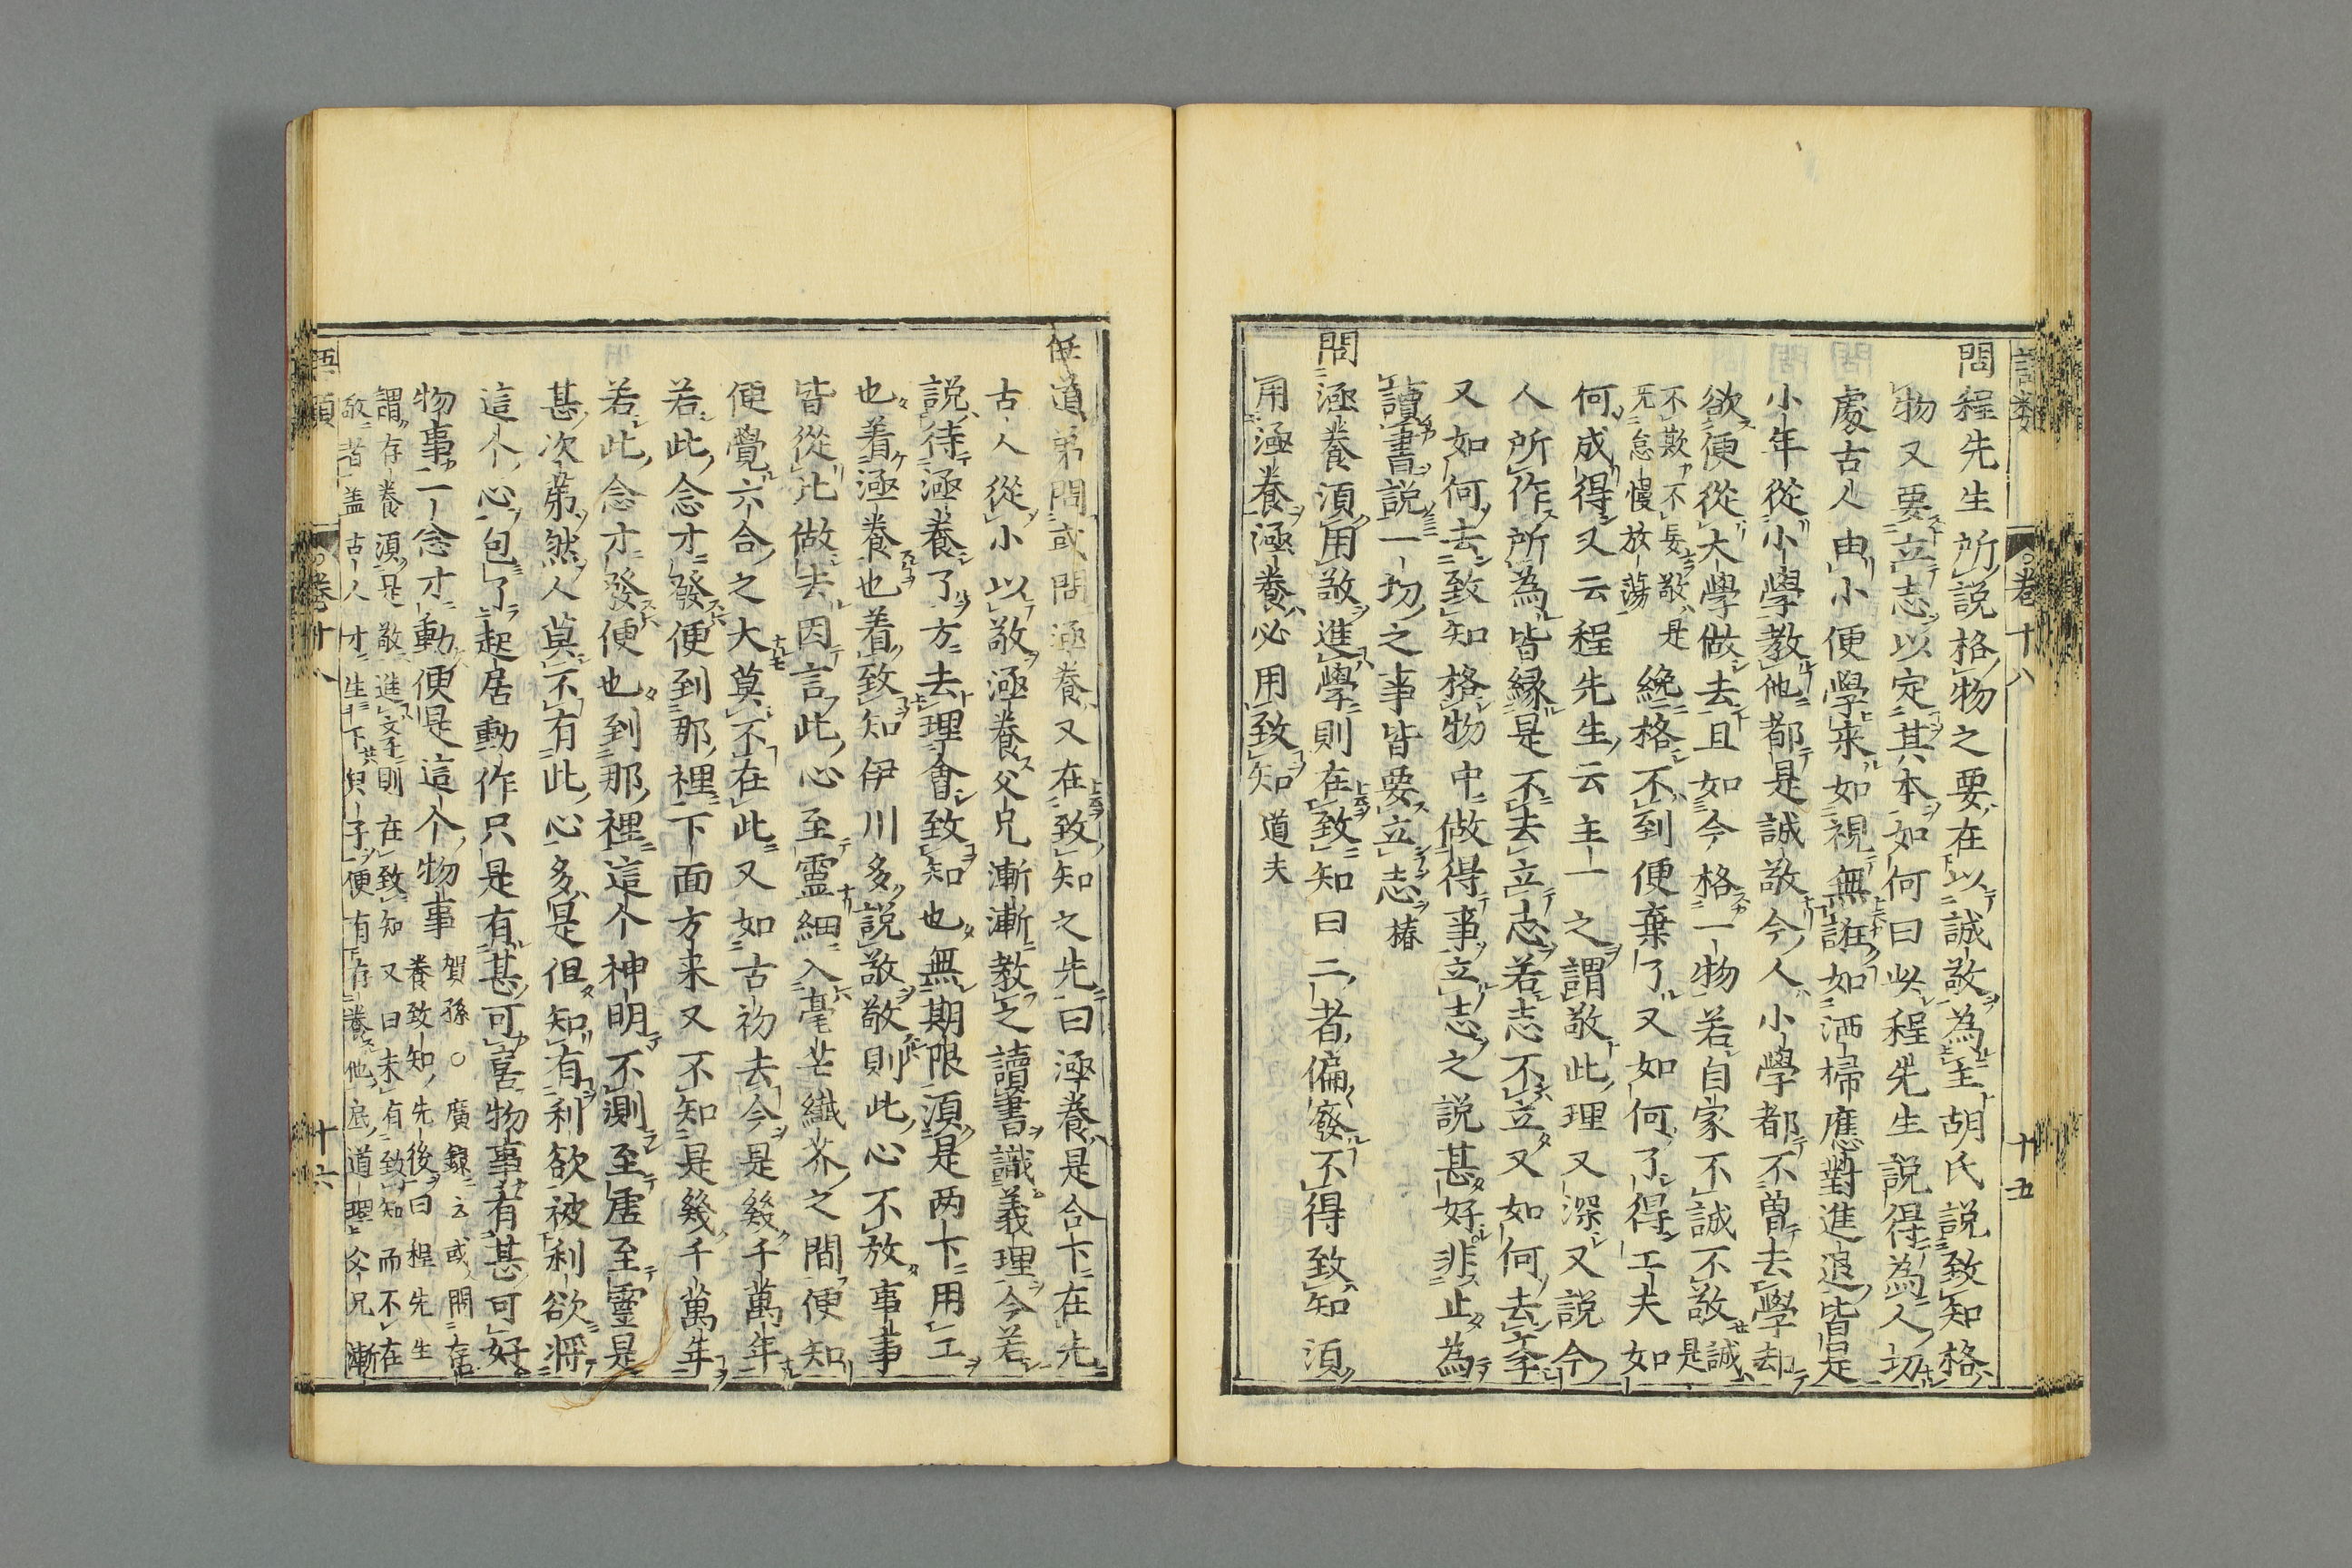 語類 卷十八 十五
問程先生所説格物之要在以誠敬為主胡氏説致知格
物又要立志以定其本如何曰此程先生説得為人切
處古人由小便學来如視無誑如洒掃應對進退皆是
小年從小學教他都是誠敬今人小學都不曽去學却
欲便從大學做去且如今格一物若自家不誠不敬誠是
不欺不妄敬是
无怠慢放蕩
纔格不到便棄了又如何了得工夫如
何成得又云程先生云主一之謂敬此理又深又説今
人所作所為皆縁是不去立志若志不立又如何去學
又如何去致知格物中做得事立志之説甚好非止為
讀書説一切之事皆要立志椿
問涵養須用敬進學則在致知曰二者偏廢不得致知須
用涵養涵養必用致知道夫
任道弟問或問涵養又在致知之先曰涵養是合下在先
古人從小以敬涵養父兄漸漸教之讀書識義理今若
説待涵養了方去理會致知也無期限須是两下用工
也着涵養也着致知伊川多説敬敬則此心不放事事
皆從此做去因言此心至靈細入毫芒纎芥之間便知
便覺六合之大莫不在此又如古初去今是幾千萬年
若此念才發便到那裡下面方来又不知是幾千萬年
若此念才發便也到那裡這个神明不測至虚至靈是
甚次第然人莫不有此心多是但知有利欲被利欲將
這个心包了起居動作只是有甚可喜物事有甚可好
物事一念才動便是這个物事
賀孫○廣錄云或問存
養致知先後曰程先生
謂存養須是敬進學則在致知又曰未有致知而不在
敬者盖古人才生下兒子便有存養他底道理父兄漸
語類 卷十八 十六